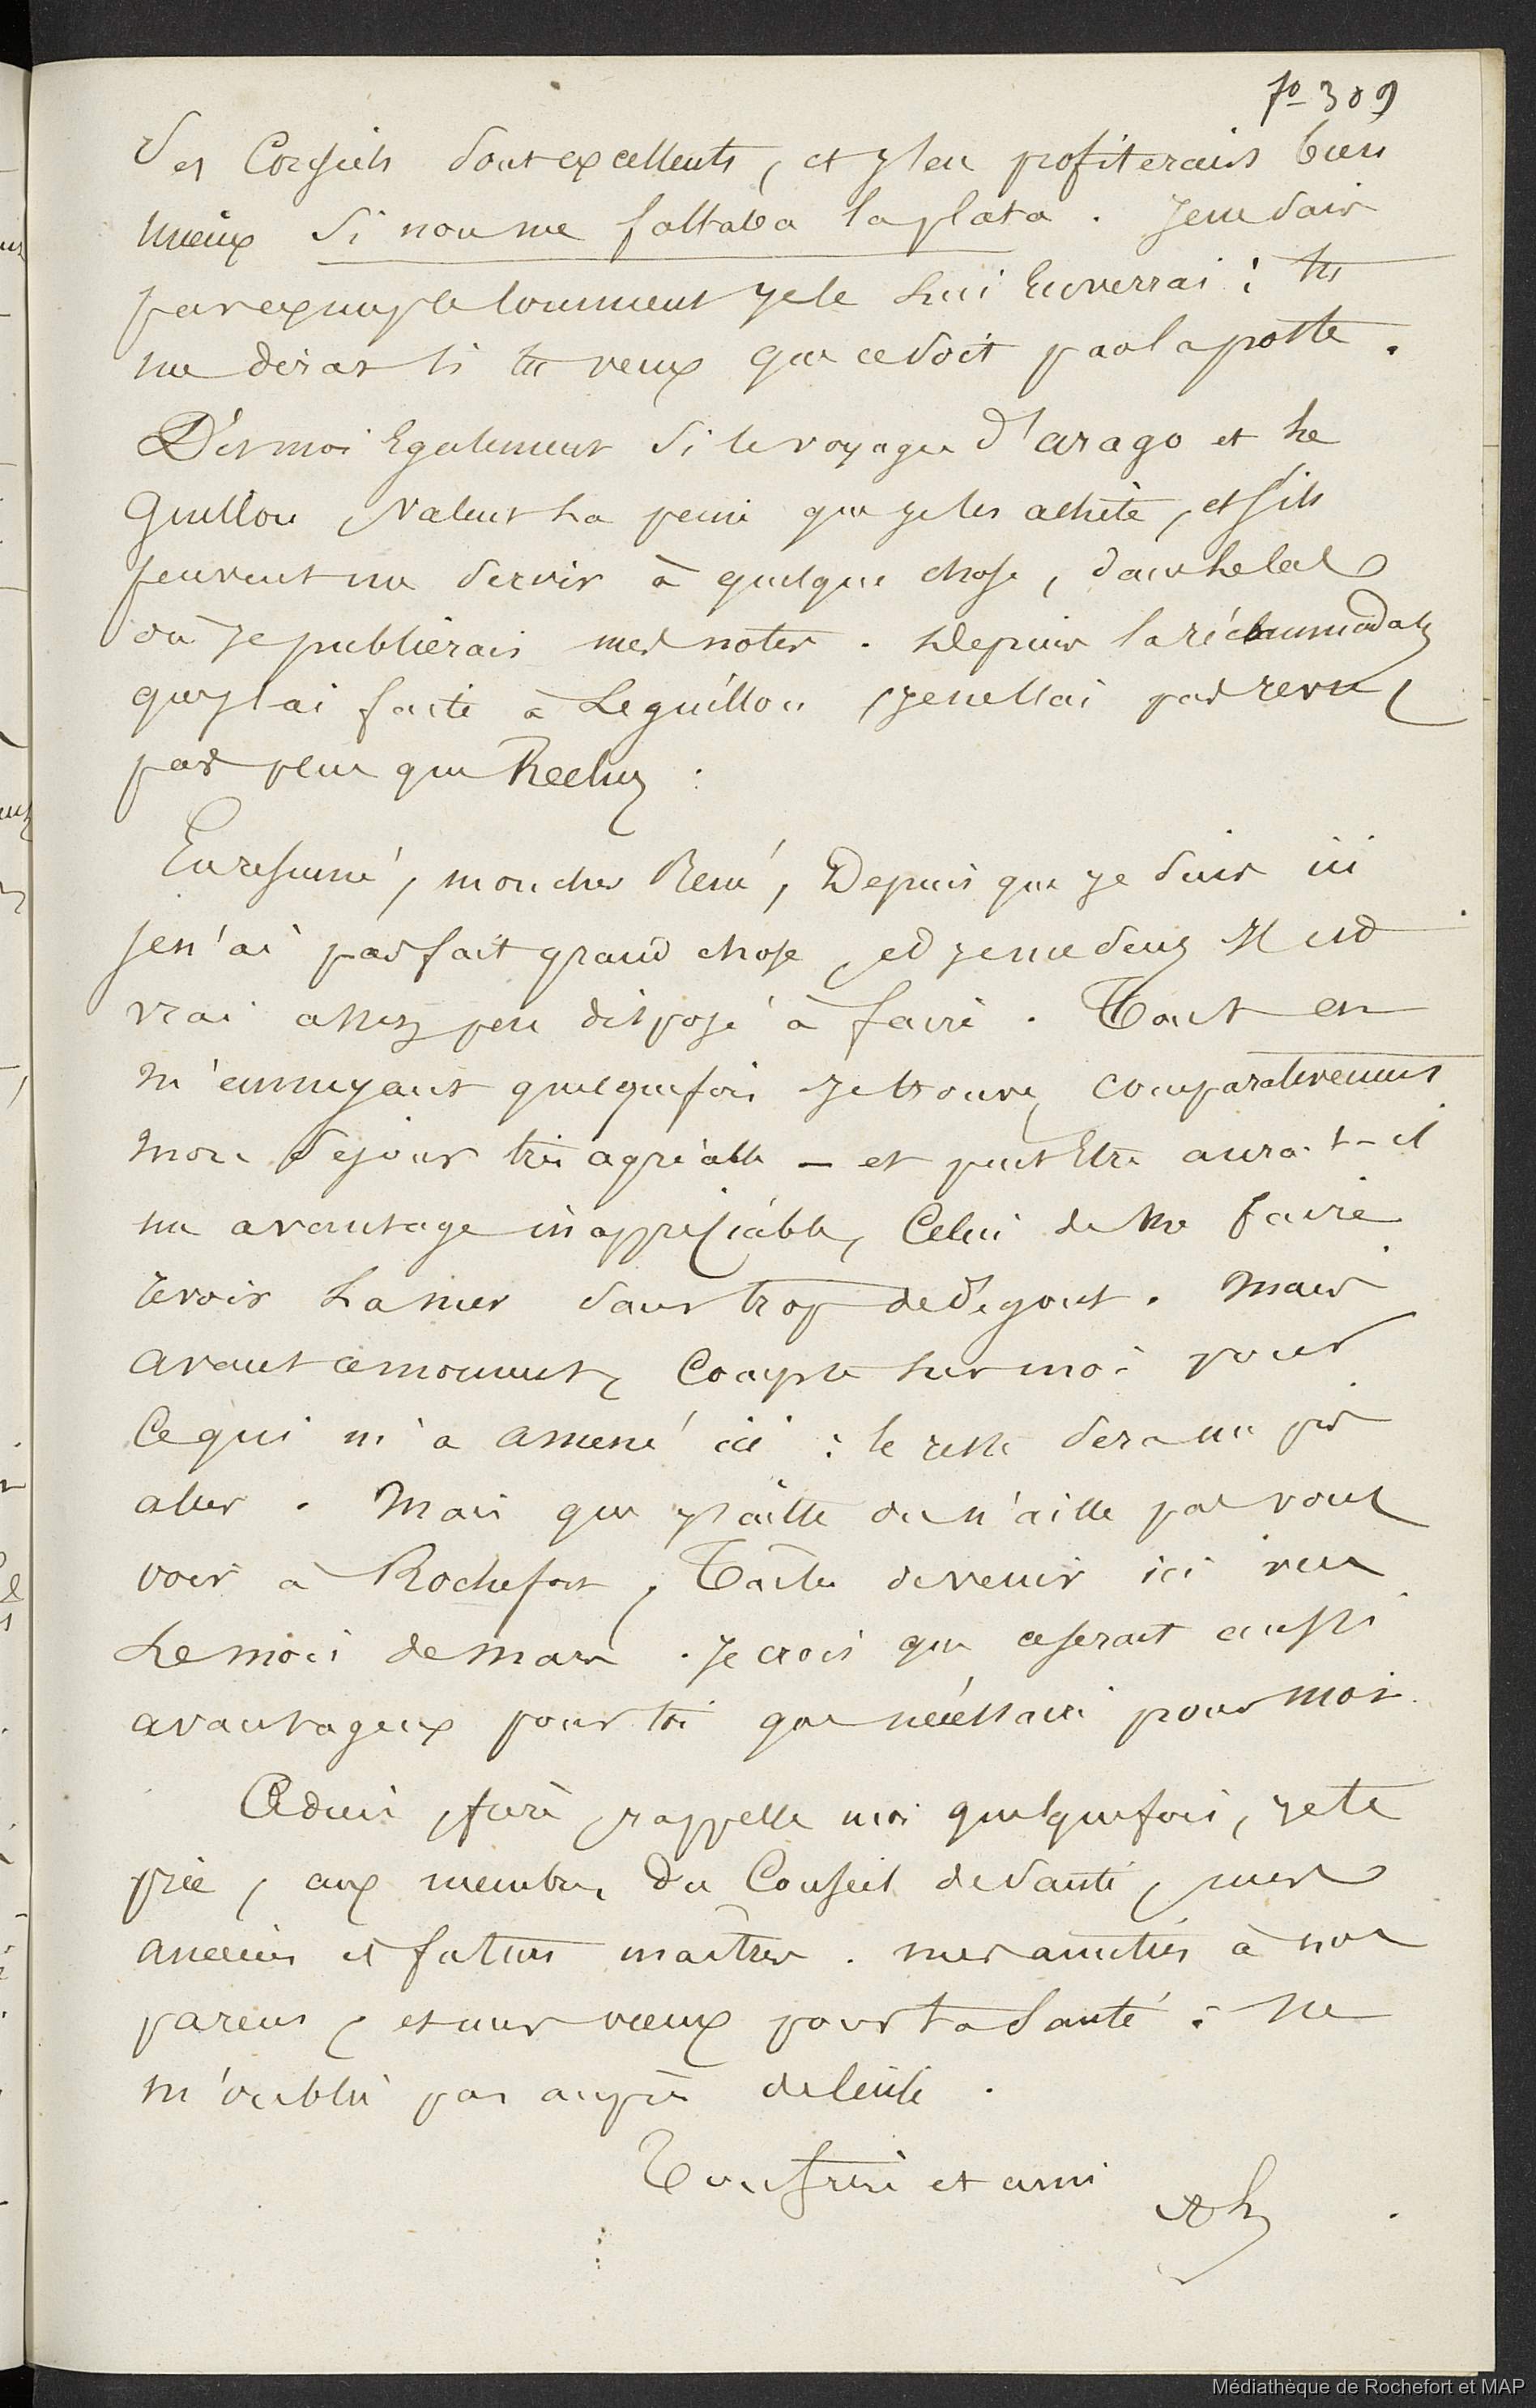 fo 309
Ses Conseils sont excellents, et j'en profiterais bien
mieux si non me faltaba la plata. Je ne sais
par exemple comment je le lui enverrai : tu
me diras si tu veux que ce soit par la poste.
Dis moi Egalement si le voyage d'arago et le
Guillou, valent la peine que je les achète, et s'ils
peuvent me servir à quelque chose, dans le cas
où je publierais mes notes. Depuis la
que j'ai faite à Leguillou, je ne l'ai pas revu,
pas plus que Recluz :
En resumé, mon cher René, Depuis que je suis ici
je n'ai pas fait grand chose, et je me sens Il est
vrai assez peu disposé à faire. Tout en
m'ennuyant quelquefois je trouve, comparativement
mon séjour très agréable — et peut Etre aura-t-il
un avantage inappréciable, Celui de me faire
revoir La mer sans trop de dégout. Mais
avant ce moment, Compte sur moi pour
Ce qui m'a amené ici : le reste sera un pis
aller. Mais que j'aille ou n'aille pas vous
voir à Rochefort, Tache de venir ici vers
Le mois de mars. Je crois que ce serait aussi
avantageux pour toi que nécéssaire pour moi.
Adieu, frère, rappelle moi quelquefois, je te
prie, aux membres Du Conseil de Santé, mes
anciens et futurs maîtres. mes amitiés à nos
parens, et mes vœux pour ta Santé : ne
m'oublie pas auprès de
Ton frère et ami
Médiathèque de Rochefort et MAP